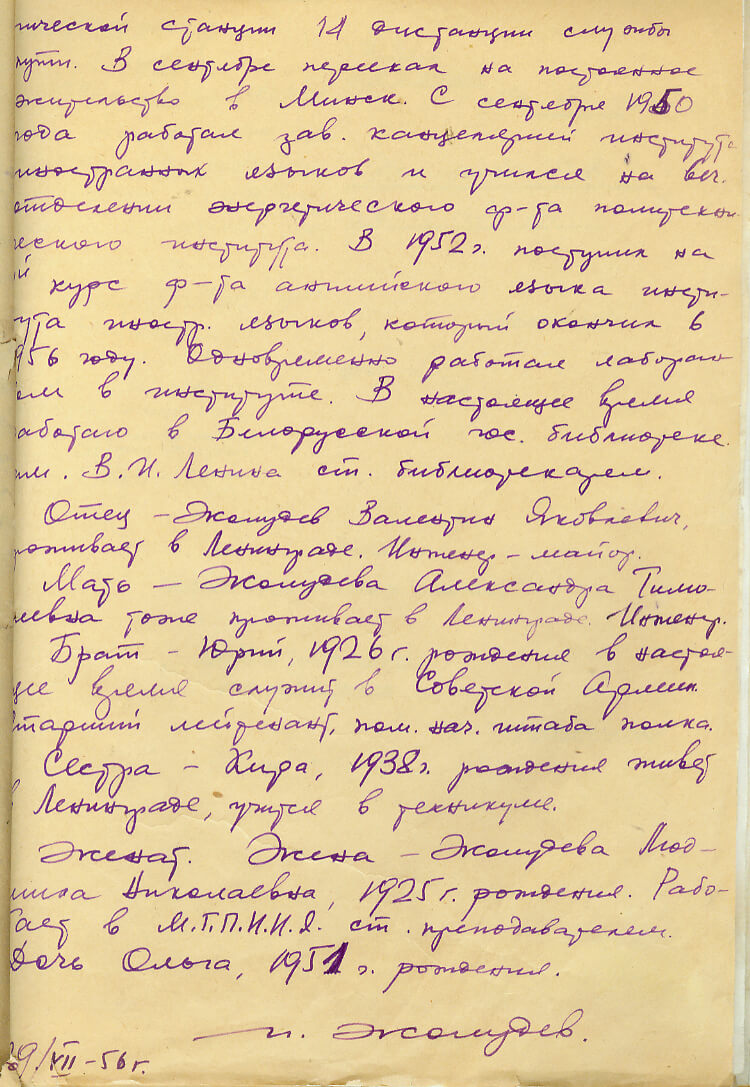 нической станции 14 дистанции службы
пути. В сентябре переехал на постоянное
жительство в Минск. С сентября 1950
года работал зав. канцелярией института
иностранных языков и учился на веч.
отделении энергетического ф-та политехни-
ческого института. В 1952 г. поступил на
ий курс ф-та английского языка инсти-
тута иностр. языков, который окончил в
1956 году. Одновременно работал лаборан-
том в институте. В настоящее время
работаю в Белорусской гос. библиотеке
им. В.И. Ленина ст. библиотекарем.
Отец – Жолудев Валентин Яковлевич,
проживает в Ленинграде. Инженер-майор.
Мать – Жолудева Александра Тимо-
еевна тоже проживает в Ленинграде. Инженер.
Брат – Юрий, 1926 г. рождения в настоя-
щее время служит в Советской Армии
старший лейтенант, пом. нач. штаба полка.
Сестра – Кира, 1938 г. рождения живёт
в Ленинграде, учится в техникуме.
Женат. Жена – Жолудева Люд-
мила Николаевна, 1925 г. рождения. Рабо-
тает в М.Г.П.И.И.Я. ст. преподавателем.
Дочь Ольга, 1951 г. рождения.
И. Жолудев.
29/VII-56 г.